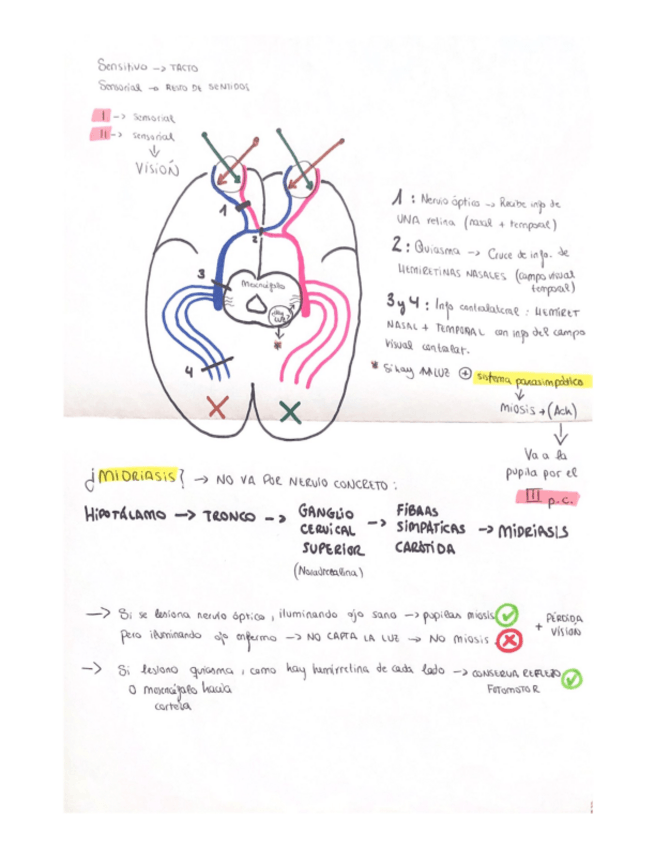 Sensitivo -> TACTO
Sensorial -> RESTO DE SENTIDOS
I -> Sensorial
II -> sensorial
↓
VISIÓN
1
2
3
4
Mesencéfalo
¿Hay LUZ?
*
X X
1 : Nervio óptico -> Recibe info de
UNA retina (nasal + temporal)
2 : Quiasma -> Cruce de info. de
HEMIRETINAS NASALES (campo visual
temporal)
3 y 4 : Info contralateral : HEMIRET
NASAL + TEMPORAL con info del campo
visual contralat.
* Si hay ↑↑LUZ ⊕ sistema parasimpático
↓
MIOSIS + (Ach)
↓
Va a la
pupila por el
III p.c.
¿MIDRIASIS? -> NO VA POR NERVIO CONCRETO :
HIPOTÁLAMO -> TRONCO -> GANGLIO CERVICAL SUPERIOR -> FIBRAS SIMPÁTICAS CARÓTIDA -> MIDRIASIS
(Noradrenalina)
-> Si se lesiona nervio óptico, iluminando ojo sano -> pupilas miosis
pero iluminando ojo enfermo -> NO CAPTA LA LUZ -> NO MIOSIS
+ PÉRDIDA VISIÓN
-> Si lesiono quiasma, como hay hemirretina de cada lado -> CONSERVA REFLEJO
FOTOMOTOR
O mesencéfalo hacia
corteza